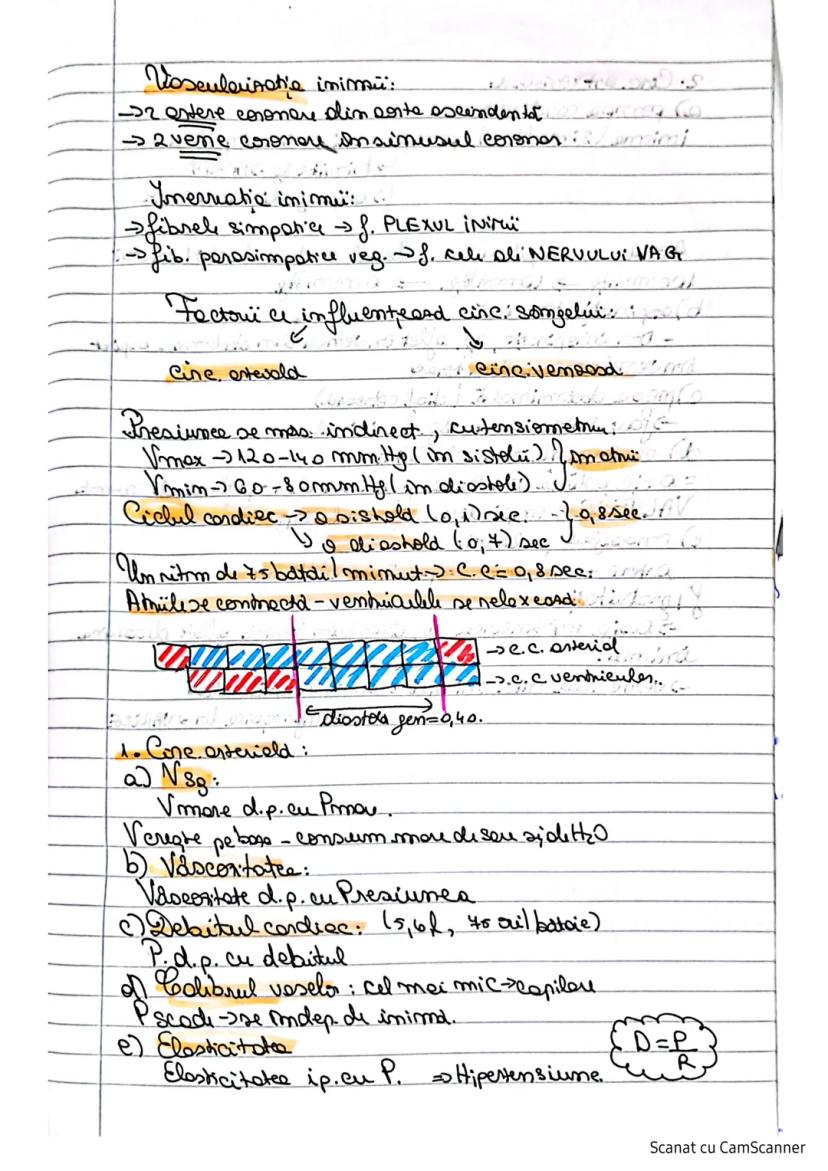 Vascularizația inimii:
→ 2 artere coronare din aorta ascendentă
→ 2 vene coronare în sinusul coronar
Inervația inimii:
→ fibrele simpatice → f. PLEXUL INIMII
→ fib. parasimpatice veg. → f. cele ale NERVULUI VAG
Factorii ce influențează circ. sângelui:
circ. arterială circ. venoasă
Presiunea se măs. indirect, cu tensiometru:
Vmax → 120-140 mm Hg (în sistolei)
Vmin → 60-80 mm Hg (în diastolei) } în atrii
Ciclul cardiac → o sistolă (0,1) sec.
↳ o diastolă (0,7) sec } 0,8 sec.
Un ritm de 75 bătăi/minut → C.C = 0,8 sec.
Atriile se contractă - ventriculele se relaxează.
→ c.c. arterial
→ c.c ventricular..
diastola gen = 0,40.
1. Circ. arterială:
a) Vsg:
V mare d.p. cu P mare.
V crește pe baza - consum mare de sare și de H2O
b) Vâscozitatea:
Vâscozitate d.p. cu Presiunea
c) Debitul cardiac: (5,6 l, 75 ml/bătaie)
P. d.p. cu debitul
d) Calibrul vaselor: cel mai mic → capilare
P scade → se îndep. de inimă.
e) Elasticitatea
Elasticitatea i.p. cu P. ⇒ Hipertensiune.
D = P/R
Scanat cu CamScanner